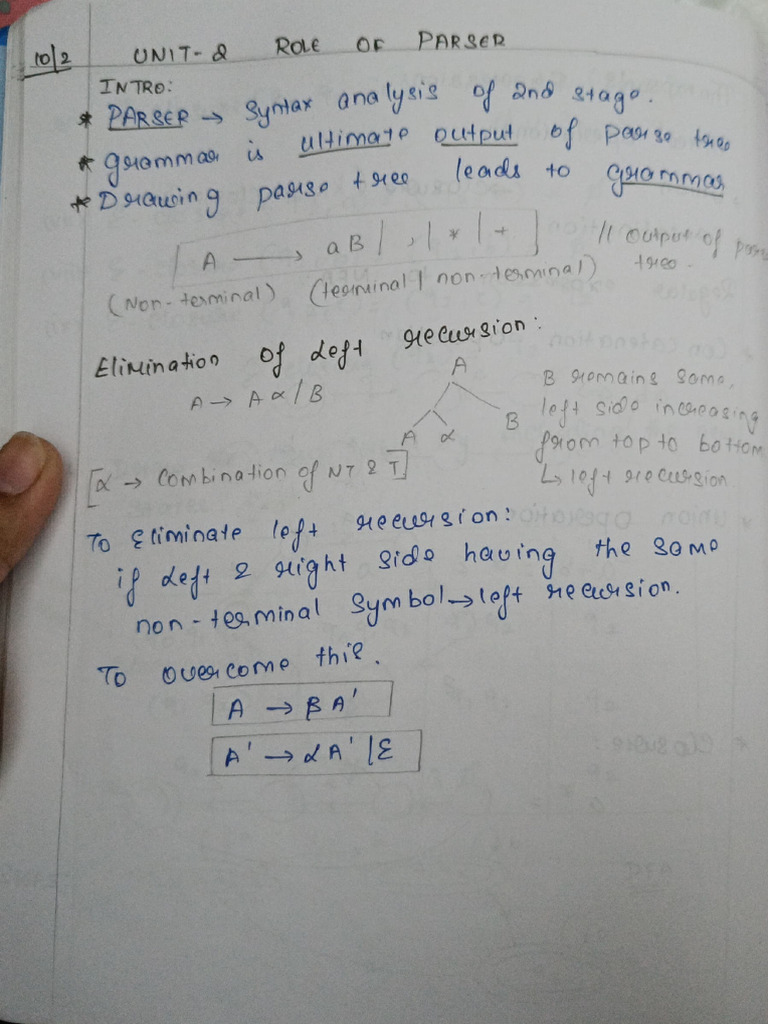 10/2 UNIT-2 ROLE OF PARSER
INTRO:
* PARSER → Syntax analysis of 2nd stage.
* grammar is ultimate output of parse tree
* Drawing parse tree leads to grammar
A → aB | , | * | + // output of parse
(Non-terminal) (terminal | non-terminal) tree.
Elimination of left recursion:
A → A α / B
A
A α B
B remains same,
left side increasing
from top to bottom
↳ left recursion
[α → Combination of NT & T]
To Eliminate left recursion:
if left & right side having the same
non-terminal symbol → left recursion.
To overcome this.
A → β A'
A' → α A' | ε